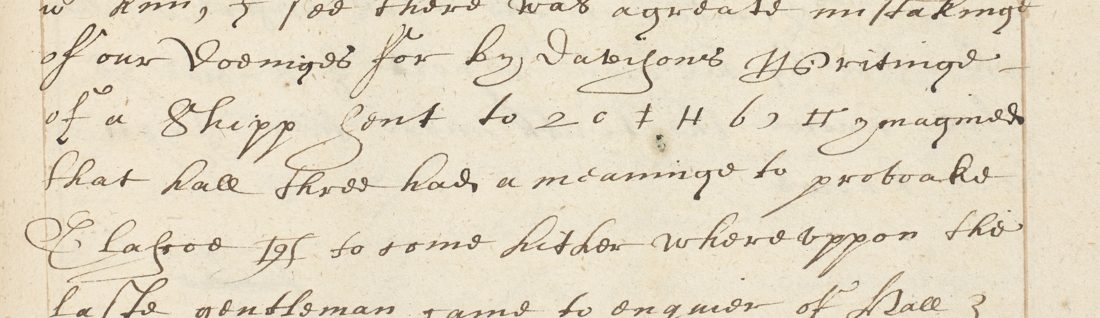 see there was a greate mistakinge
of our doeinges for by Davisons Writinge
of a Shipp sent to 20 ymagined
that hall three had a meaninge to provoake
to come hither where vppon the
laste gentleman came to enquier of Hall 3